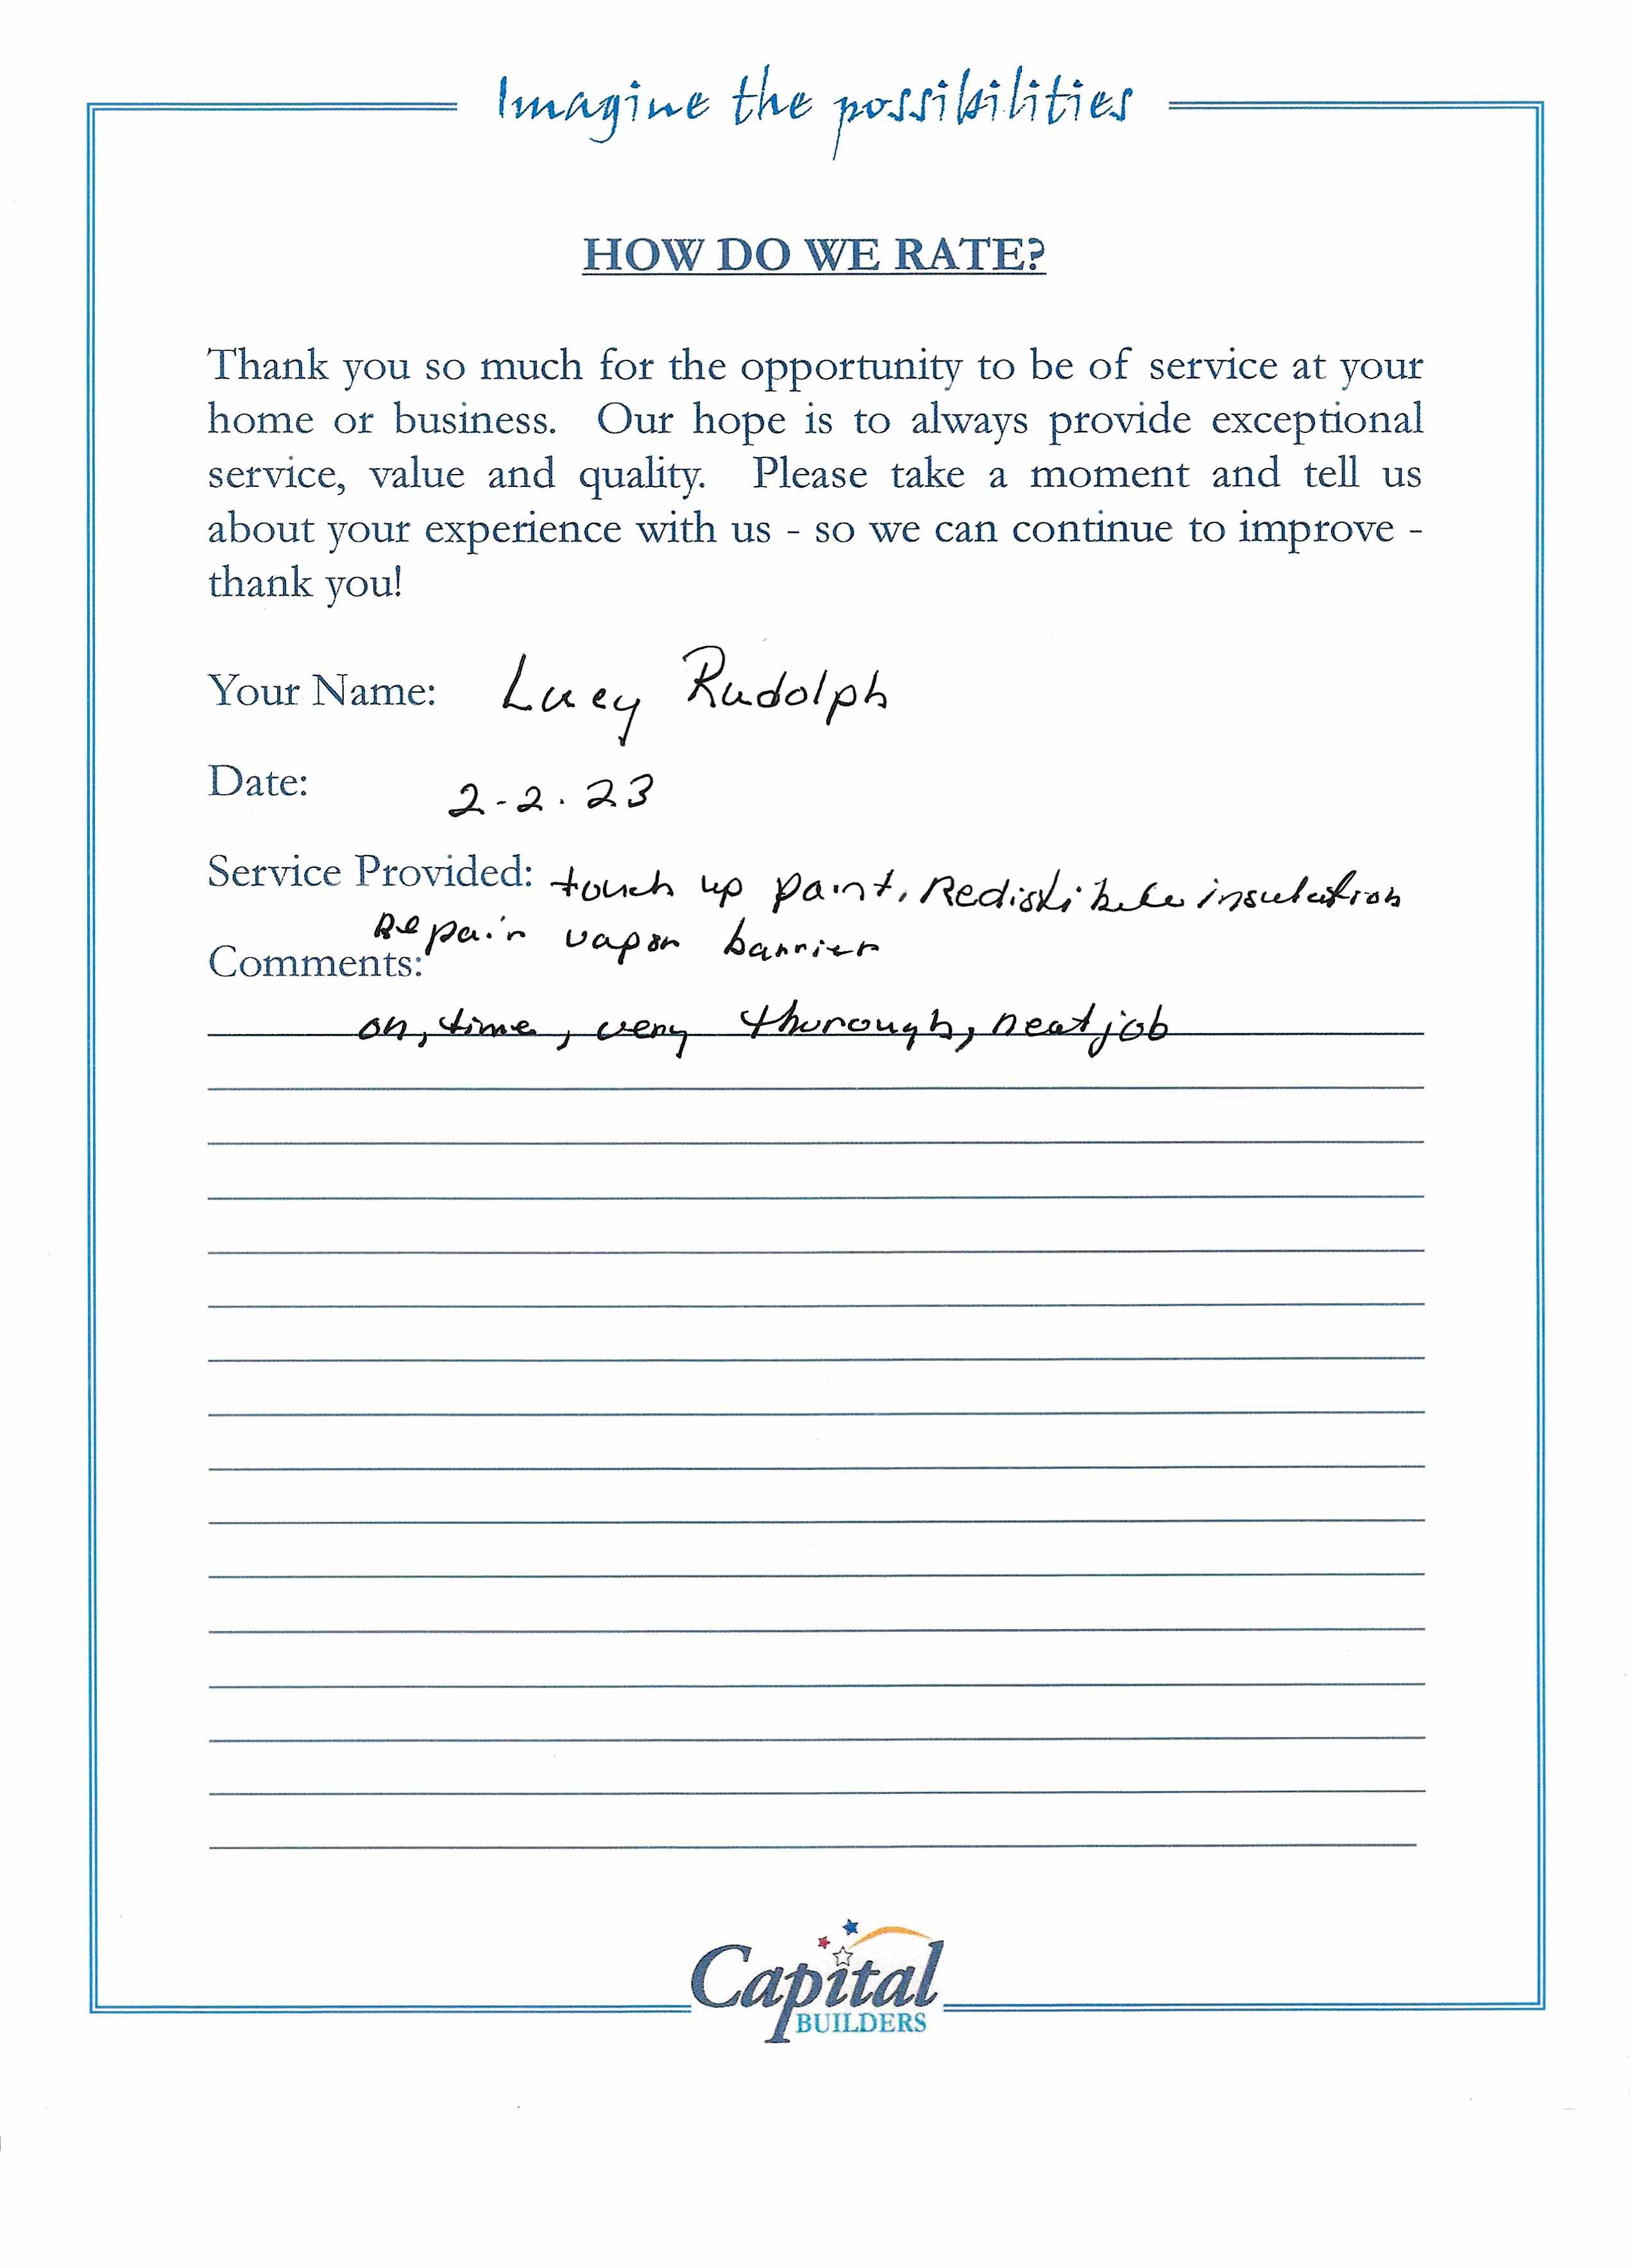 Imagine the possibilities
HOW DO WE RATE?
Thank you so much for the opportunity to be of service at your
home or business. Our hope is to always provide exceptional
service, value and quality. Please take a moment and tell us
about your experience with us - so we can continue to improve -
thank you!
Your Name: Lucy Rudolph
Date: 2-2.23
Service Provided: touch up paint, Redistribute insulation
Repair vapor barrier
Comments:
on, time, very thorough, neat job
Capital
BUILDERS